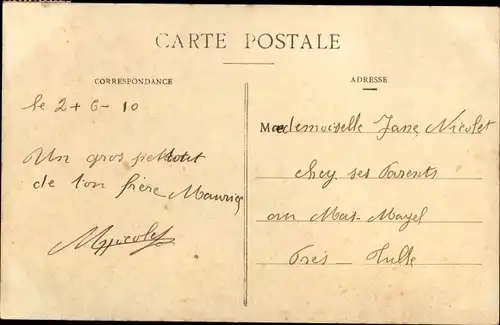 CARTE POSTALE
CORRESPONDANCE
ADRESSE
le 2 + 6 - 10
Un gros
de ton frère Maurice
MNicolet
Mademoiselle Jane Nicolet
chez ses Parents
au Mas-Mazel
Près Tulle